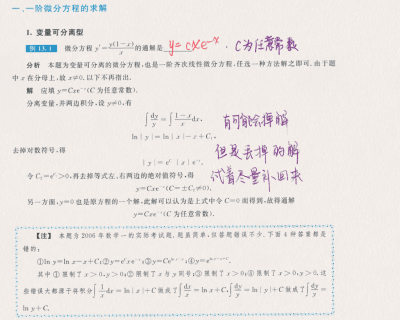 一、一阶微分方程的求解
1. 变量可分离型
例 13.1 微分方程 y′=y(1−x)/x 的通解是 y=cxe^{-x}. C为任意常数
分析 本题为变量可分离的微分方程,也是一阶齐次线性微分方程,任选一种方法解之即可. 由于题
中 x 在分母上,故 x≠0,以下不再指出.
解 应填 y=Cxe^{-x}(C 为任意常数).
分离变量,并两边积分,设 y≠0,有
∫dy/y=∫(1−x)/x dx, 有可能会掉解
ln|y|=ln|x|−x+C₁, 但是丢掉的解
去掉对数符号,得
|y|=e^{C₁}|x|e^{-x}, 试着尽量补回来
令 C₂=e^{C₁}>0,再去掉等式左、右两边的绝对值符号,得
y=Cxe^{-x}(C=±C₂≠0).
另一方面,y=0 也是原方程的一个解,此解可以认为是上式中令 C=0 而得到,故得通解
y=Cxe^{-x}(C 为任意常数).
【注】 本题为 2006 年数学一的实际考试题,题虽简单,但答题错误不少,下面 4 种答案都是
错的:
①ln y=ln x−x+C;
其中①限制了 x>0,y>0;②限制了 x 与 y 同号;③限制了 x>0;④限制了 x>0,y>0. 这
些错误大都源于将积分∫1/x dx=ln|x|+C 做成了∫dx/x=ln x+C,∫dy/y=ln|y|+C 做成了∫dy/y=
ln y+C.